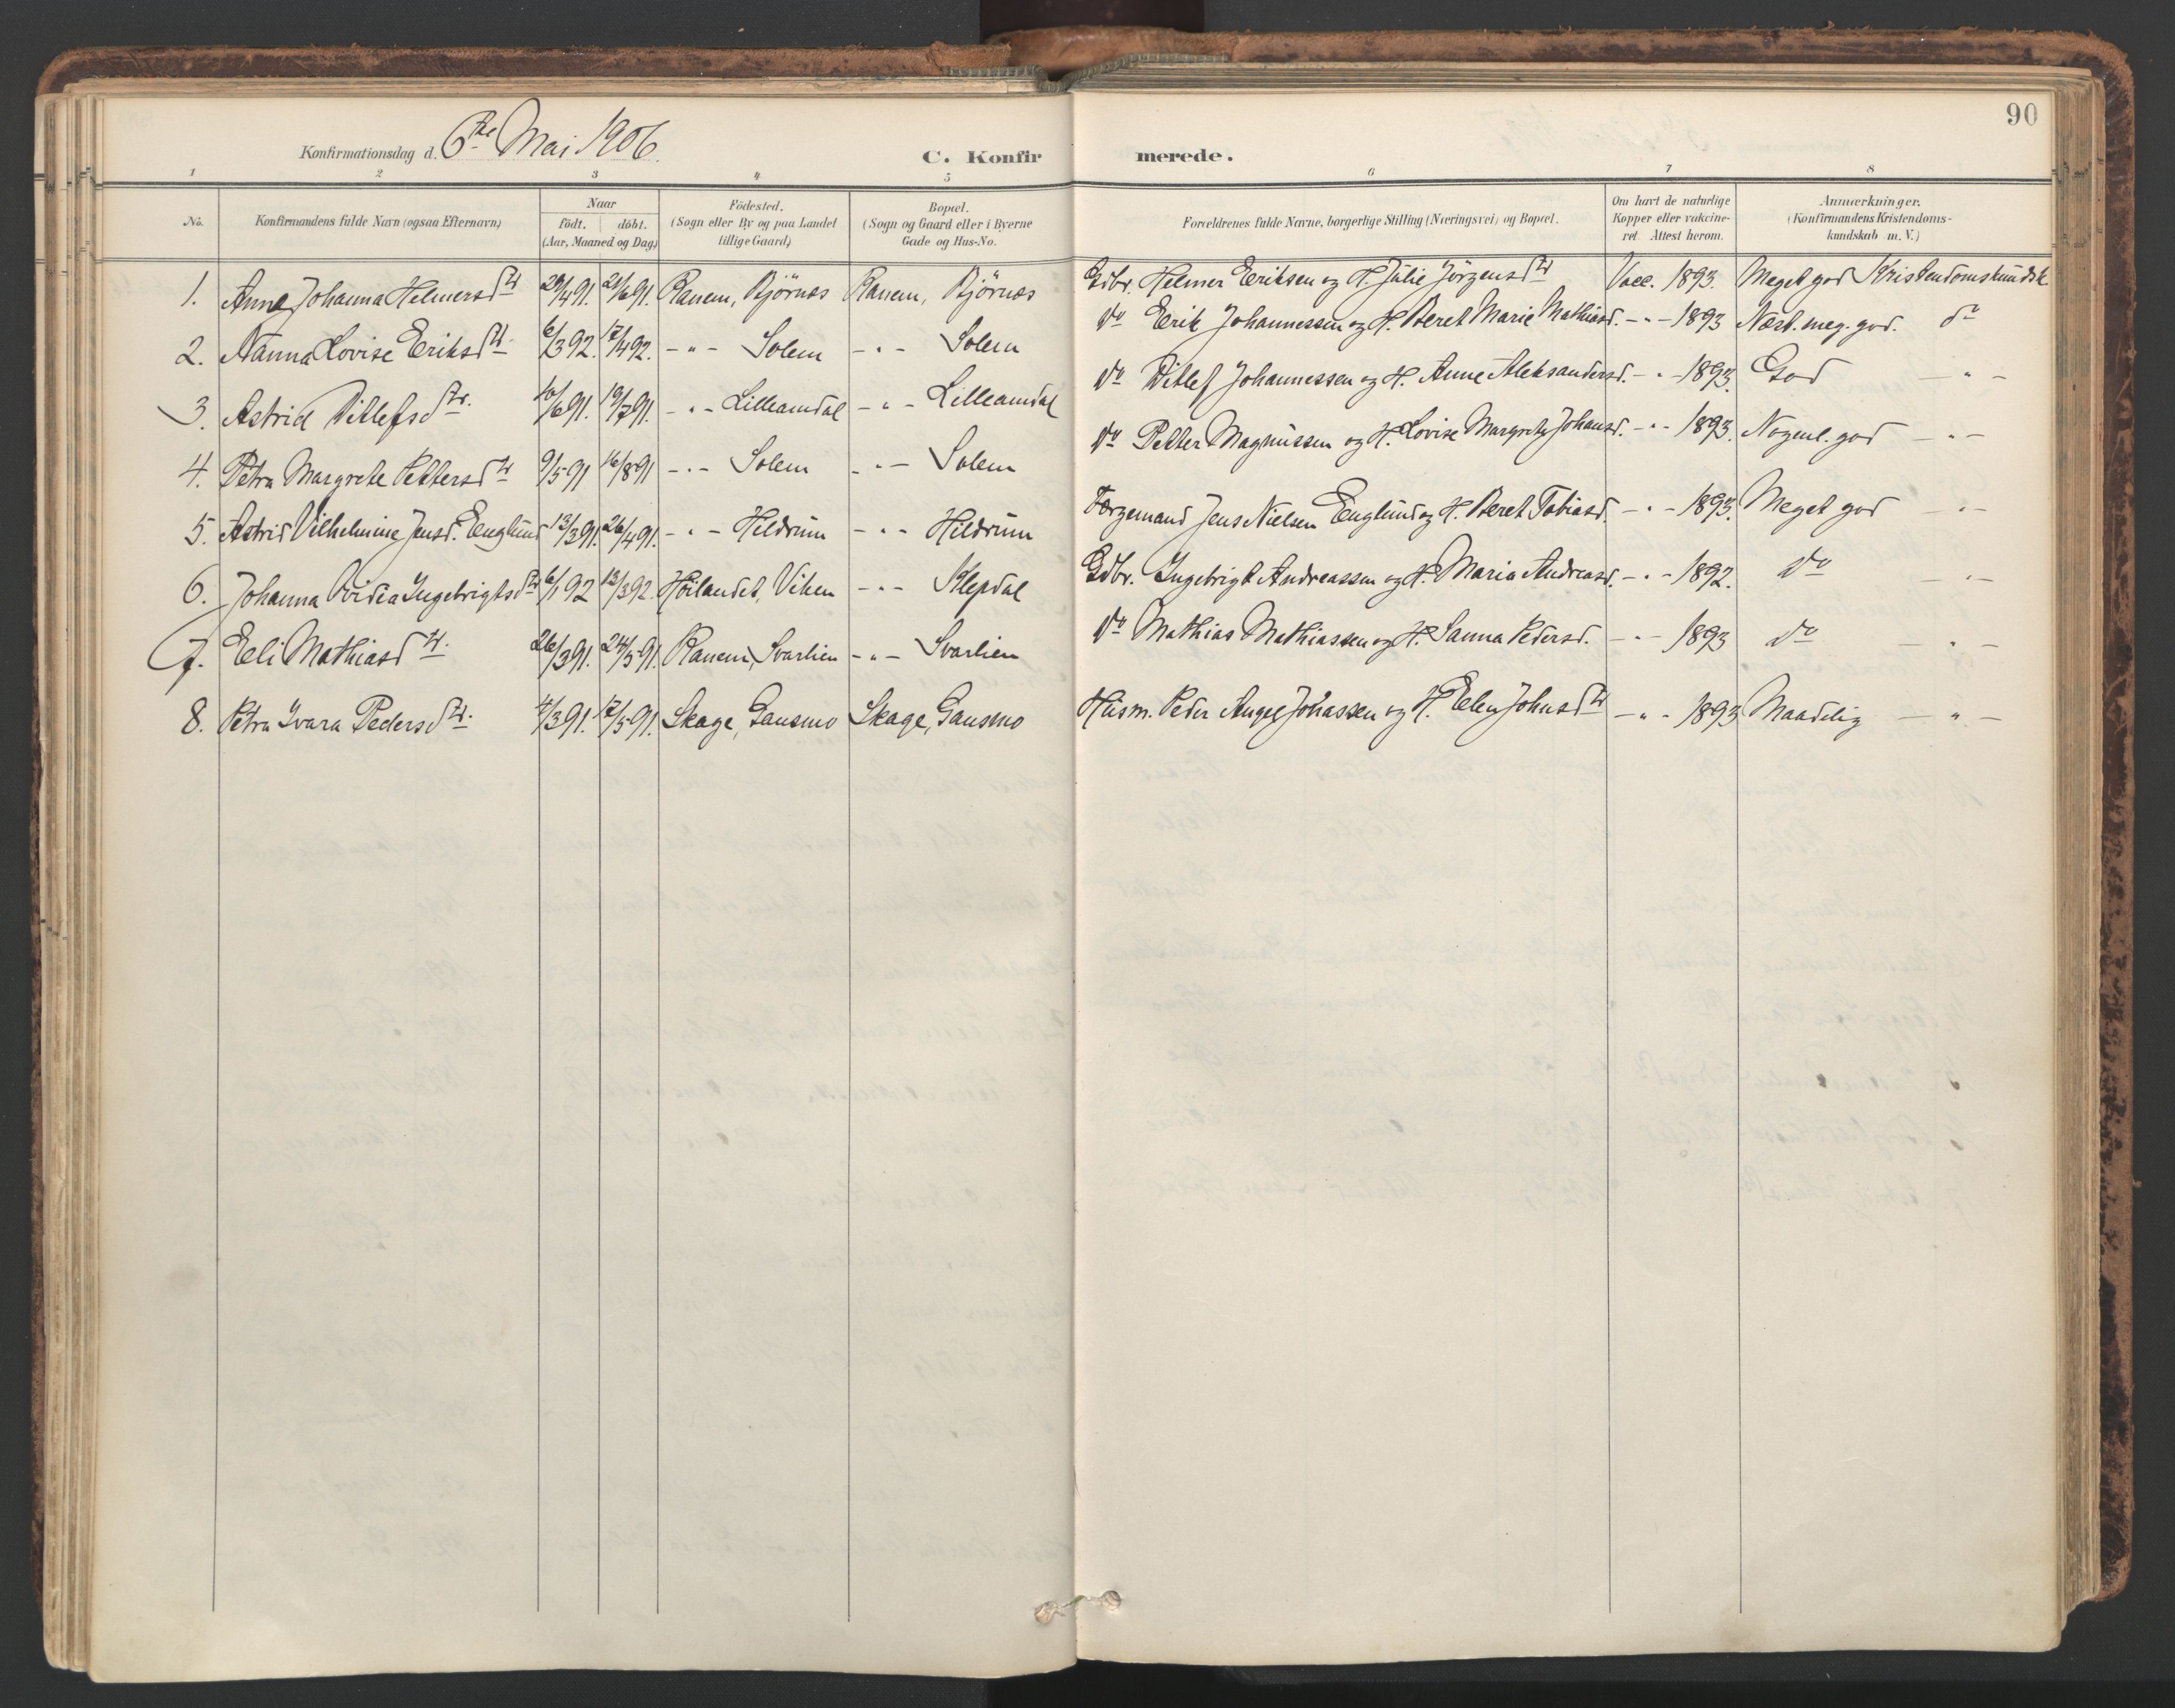 90
Konfirmationsdag d. 6te Mai 1906.
C. Konfirmerede.
1 2 3 4 5 6 7 8
No. Konfirmandens fulde Navn (ogsaa Efternavn) Naar födt. döbt. (Aar, Maaned og Dag) Födested. (Sogn eller By og paa Landet tillige Gaard) Bopæl. (Sogn og Gaard eller i Byerne Gade og Hus-No. Forældrenes fulde Navne, borgerlige Stilling (Næringsvei) og Bopæl. Om havt de naturlige Kopper eller vakcineret. Attest herom. Anmærkninger. (Konfirmandens Kristendomskundskab m. V.)
1. Anna Johanna Helmersdtr 29/4 91. 21/6 91. Ranem, Bjørnes Ranem, Bjørnes Gdbr. Helmer Eeriksen og H. Julie Jörgensdtr Vacc. 1893. Meget god Kristendomskundsk
2. Nanna Lovise Eriksdtr. 6/3 92. 17/4 92. -"- Solem -"- Solem do Eerik Johannessen og H. Beret Marie Mathiasd. -"- 1893 Næst. meg. god. do
3. Astrid Ditlefsdtr. 10/6 91. 19/7 91. -"- Lilleamdal -"- Lilleamdal do Ditlef Johannessen og H. Anne Aleksandersd. -"- 1893. God -"-
4. Petra Margrete Pettersdtr 9/5 91 16/8 91 -"- Solem -"- Solem do Petter Magnussen og H. Lovise Margrete Johansd. -"- 1893. Nogenl. god -"-
5. Astrid Vilhelmine Jensd. Eenglund 13/3 91. 26/4 91. -"- Hildrum -"- Hildrum Færgemand Jens Nielsen Eenglund og H. Beret Tobiasd. -"- 1893. Meget god -"-
6. Johanna Ovidea Ingebrigtsdtr 6/1 92 13/3 92. Høilandet, Viken -"- Klepdal Gdbr. Ingebrigt Andreassen og H. Maria Andreasd. -"- 1892. do -"-
7. Eeli Mathiasdtr. 26/3 91. 24/5 91. Ranem, Svarlien -"- Svarlien do Mathias Mathiassen og H. Sanna Pedersd. -"- 1893 do -"-
8. Petra Ivara Pedersdtr. 4/3 91. 17/5 91. Skage, Gausmo Skage, Gausmo Husm. Peder Angel Johassen og H. Eelen Johnsdtr -"- 1893 Maadelig -"-